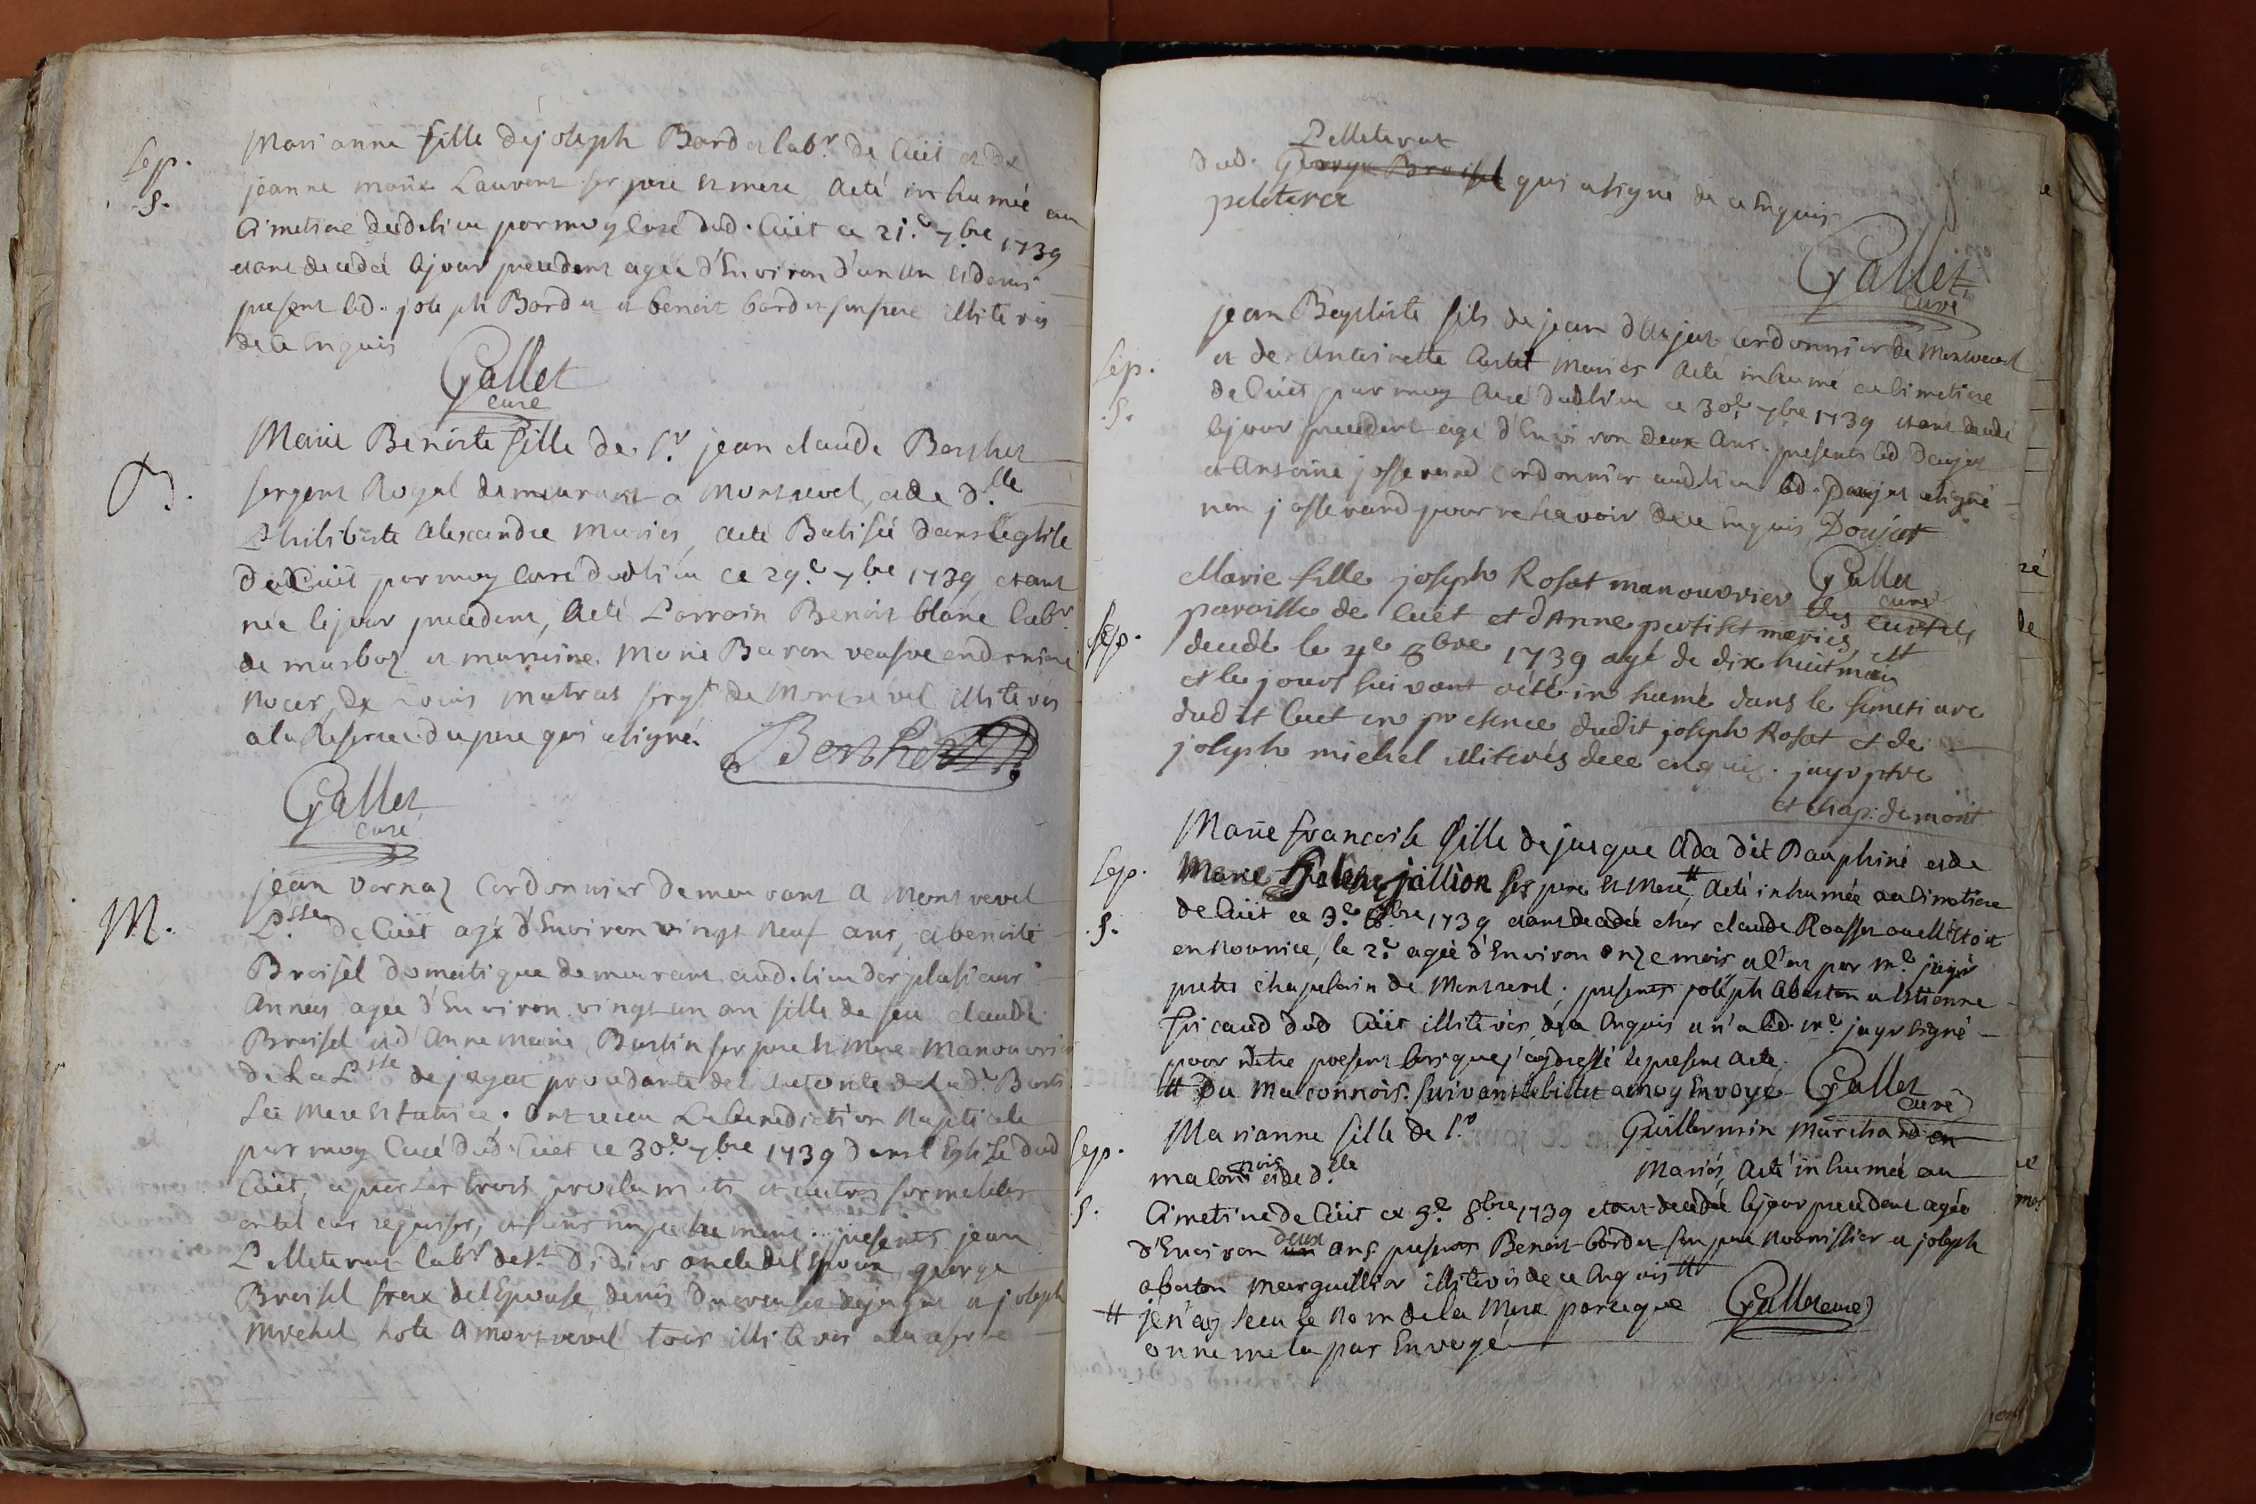 Sep.
.S.
Marianne fille de joseph Bardet labr. de Cüet et de
jeanne marie Laurent ses pere et mere a eté inhumée au
Cimetiere dudit lieu par moy Curé dud. Cüet ce 21.e 7bre 1739
etant decedée le jour precedent agée d'Environ d'un an et demi
present led. joseph Bardet et benoit bardet son pere illiterés
de ce Enquis
Gallet
curé
B.
Marie Benoite fille de Sr. jean claude Berthet
sergent Royal demeurant a Montrevel, et de d.lle
Philiberte Alexandre Mariés, a eté Batisée dans leglise
dud Cüet par moy Curé dud lieu ce 29.e 7bre 1739 etant
née le jour precedent, a eté Parrain Benoit blanc labr
de marboz et marraine Marie Baron veufve en
de Louis Matras sergt de Montrevel illiterés
a la Reserve du pere qui a signé.
Berthet
Gallet
curé
M.
jean vernaz Cordonnier demeurant a Montrevel
P.sse de Cüet agé d'Environ vingt neuf ans, et benoite
Broisel domestique demeurant aud. lieu des plusieurs
Années agée d'Environ vingt un an fille de feu claude
Broisel et d'Anne Marie Burtin ses pere et Mere Manouvriers
de la P.sse de jayat procedante de l'autorité de lad. Burtin
sa Mere et tutrice, ont receu La benediction Nuptiale
par moy Curé dud. Cüet ce 30.e 7bre 1739 dans l'Eglise dud
Cüet, apres les trois proclamats et autres formalités
en tel cas requises, et sans Empechement... presents jean
Pelleterat labr de St. Didier oncle de l'Epoux, george
Broisel frere de l'Epouse, denis de jayat et joseph
Michel hote a montrevel tous illiterés a la reserve
Pelleterat
dud. George Broisel qui a signé de ce Enquis
peleterat
Gallet
curé
Sep.
.S.
jean Baptiste fils de jean doujat cordonnier de Montrevel
et de Antoinette Mariés a eté inhumé au Cimetiere
de Cüet par moy Curé dud lieu ce 30e 7bre 1739 etant decedé
le jour precedent agé d'Environ deux Ans. presents led Doujat
et Antoine josserand cordonnier aud lieu led. Doujat a signé
non josserand pour ne sçavoir de ce Enquis Doujat
Gallet
curé
Sep.
Marie fille joseph Rosat manouvrier
paroisse de Cuet et d'Anne pertiset mariés est
decedé le 4e 8bre 1739 agé de dix huit mois
et le jour suivant a été inhumé dans le simetiere
dudit Cuet en presence dudit joseph Rosat et de
joseph michel illiterés dece enquis. jayr ptre
et chap. de mont
Sep.
.S.
Marie francoise fille de jacque Ada dit Dauphiné et de
Marie helene jallion ses pere et Mere # a eté inhumée au Cimetiere
de Cüet ce 3.e 8bre 1739 etant decedée chez claude Rousset ou elle Etoit
en nourrice, le 2.e agée d'Environ onze mois, et l'en par m.e jayr
pretre chapelain de Montrevel, presents joseph abaston et Etienne
fricaud dud Cüet illiterés de ce Enquis et n'a led. m.e jayr signé
pour n'etre present lorsque j'ay dressé le present Acte.
# Du Maconnois. suivant le billet a moy Envoyé Gallet
curé
Sep.
.S.
Marianne fille de Sr. Guillermin Marchand en
maconnois et de d.lle Mariés, a eté inhumée au
Cimetiere de Cüet ce 5.e 8bre 1739 etant decedée le jour precedent agée
d'Environ un deux ans presents Benoit bardet son pere Nourrissier et joseph
abaston Marguillier illiterés de ce Enquis #
# je n'ay sceu le Nom de la Mere parceque Gallet curé
on ne me la pas Envoyé